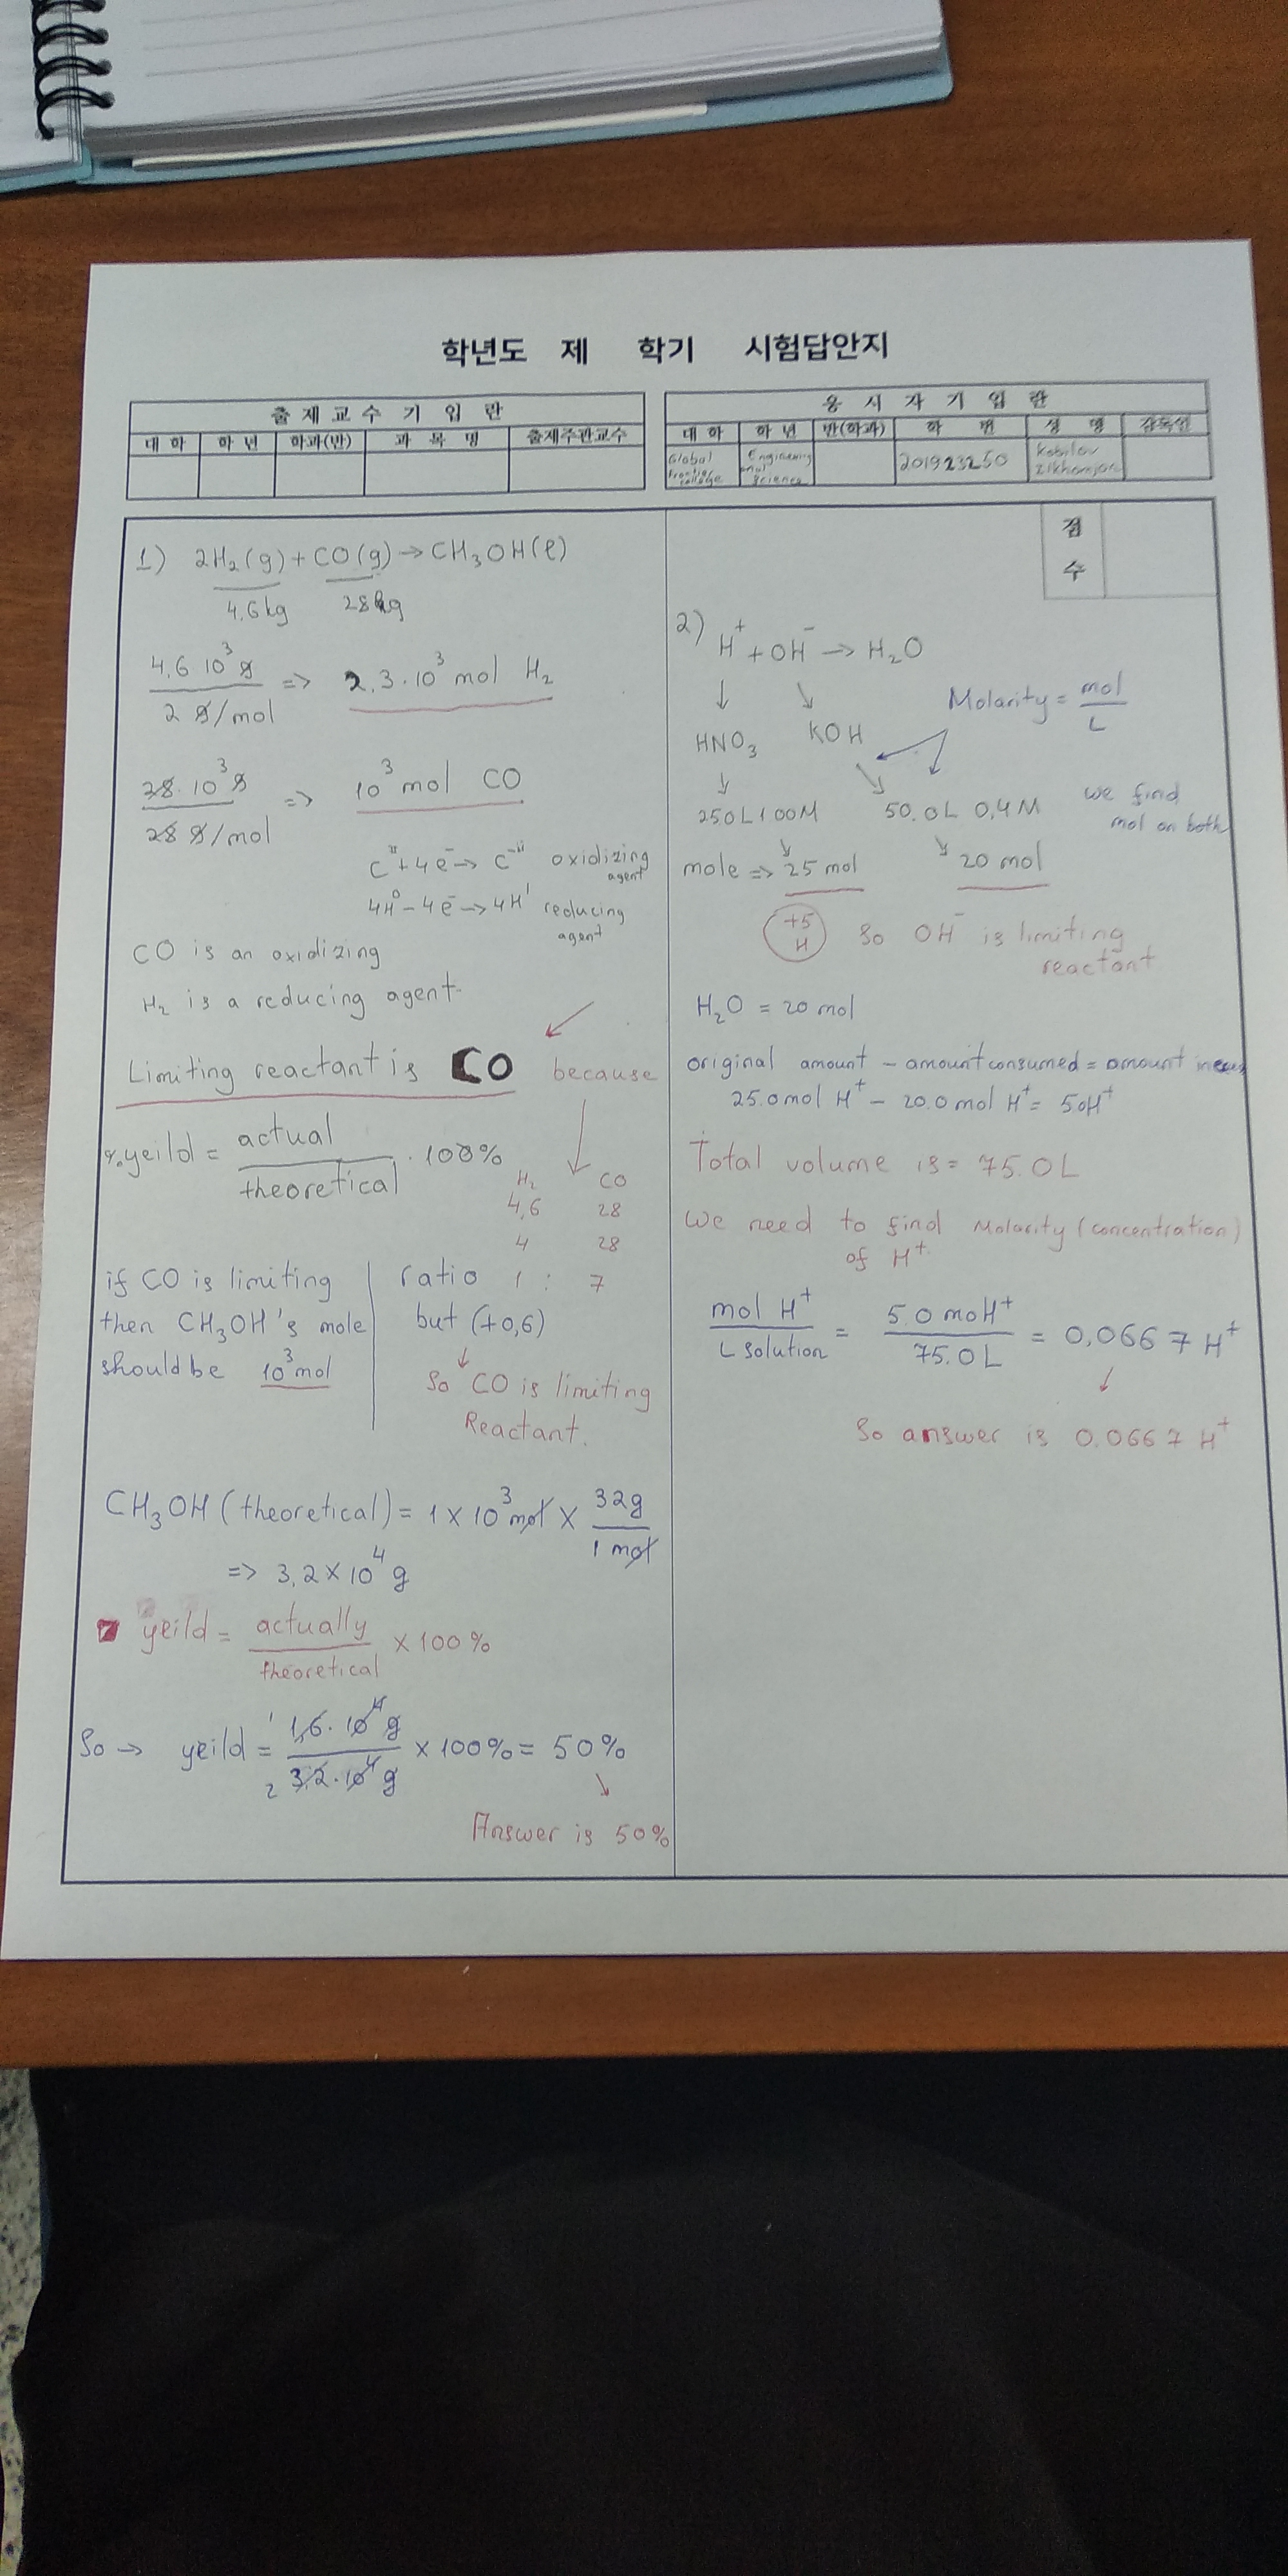 학년도 제 학기 시험답안지
출제교수기입란
대학 학년 학과(반) 과목명 출제주관교수
응시자기입란
대학 학년 반(학과) 학번 성명 감독인
Global Frontier College Engineering and Science 201923250 Kobilov
점수
1) 2H₂(g)+CO(g)→CH₃OH(l)
4.6kg 28kg
4.6 10³g / 2 g/mol => 2.3·10³ mol H₂
28·10³g / 28 g/mol => 10³ mol CO
C^II+4e⁻→ C^-II oxidizing agent
4H⁰-4e⁻→4H^I reducing agent
CO is an oxidizing
H₂ is a reducing agent
Limiting reactant is CO because
%.yeild = actual / theoretical · 100%
H₂ CO
4,6 28
4 28
ratio 1 : 7
but (+0,6)
So CO is limiting
Reactant.
if CO is limiting
then CH₃OH's mole
should be 10³mol
CH₃OH (theoretical) = 1×10³ mol × 32g / 1 mol
=> 3,2×10⁴ g
yeild = actually / theoretical × 100%
So → yeild = 1,6·10⁴ g / 3,2·10⁴ g × 100% = 50%
1
2
Answer is 50%
2) H⁺+OH⁻→ H₂O
Molarity = mol / L
HNO₃ KOH
250L 100M 50.0L 0,4M
we find
mol on both
mole => 25 mol 20 mol
+5 H So OH⁻ is limiting
reactant
H₂O = 20 mol
original amount - amount consumed = amount in
25.0mol H⁺ - 20.0 mol H⁺ = 5.0H⁺
Total volume is = 75.0L
We need to find Molarity (concentration)
of H⁺
mol H⁺ / L solution = 5.0 moH⁺ / 75.0L = 0,0667 H⁺
So answer is 0.0667 H⁺